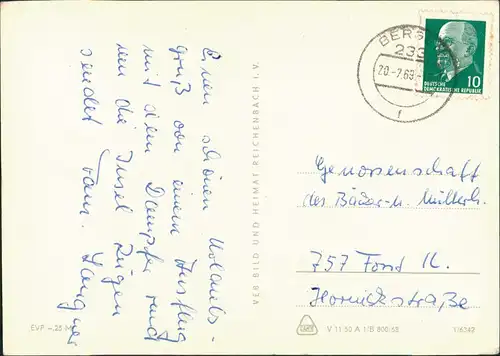 Einen schönen Urlaubs-
gruß von einem Ausflug
mit dem Dampfer rund
um die Insel Rügen
sendet Fam. Langner
VEB BILD UND HEIMAT REICHENBACH I. V.
BERGEN
233
20.-7.68
f
DEUTSCHE
DEMOKRATISCHE REPUBLIK
10
Genossenschaft
des Bäcker- u. Müllerh.
757 Forst N.
Hornickstraße
EVP -,25 M
V 11 50 A 1/B 800/68
1/6249